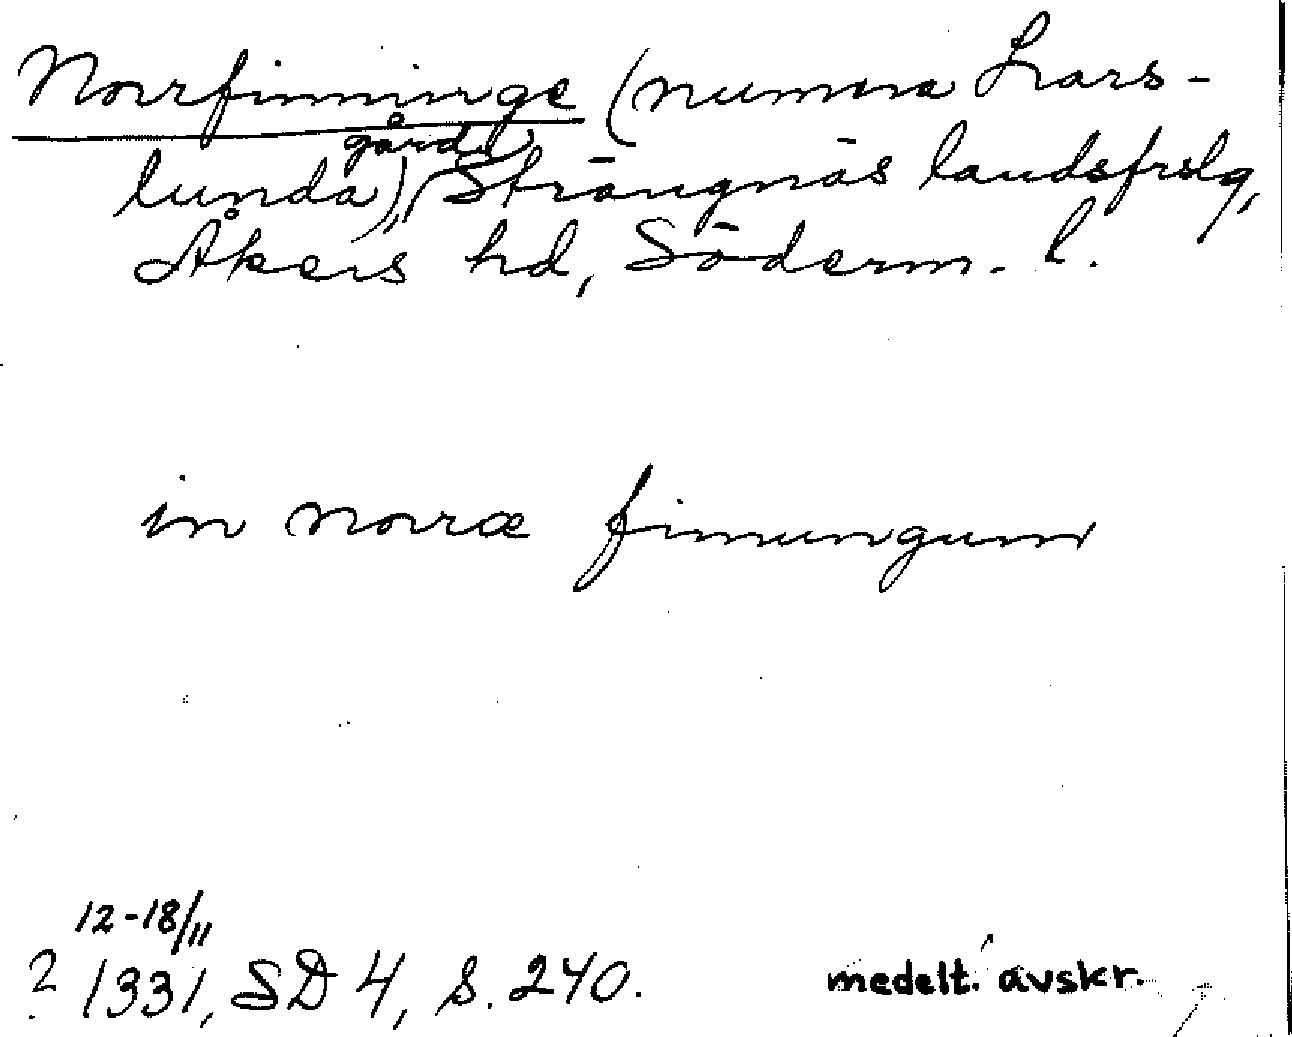 Norrfinninge (numera Lars-
lunda), gård, Strängnäs landsfrslg,
Åkers hd, Söderm. l.
in norræ finnungum
12-18/11
? 1331, SD 4, s. 240.
medelt. avskr.